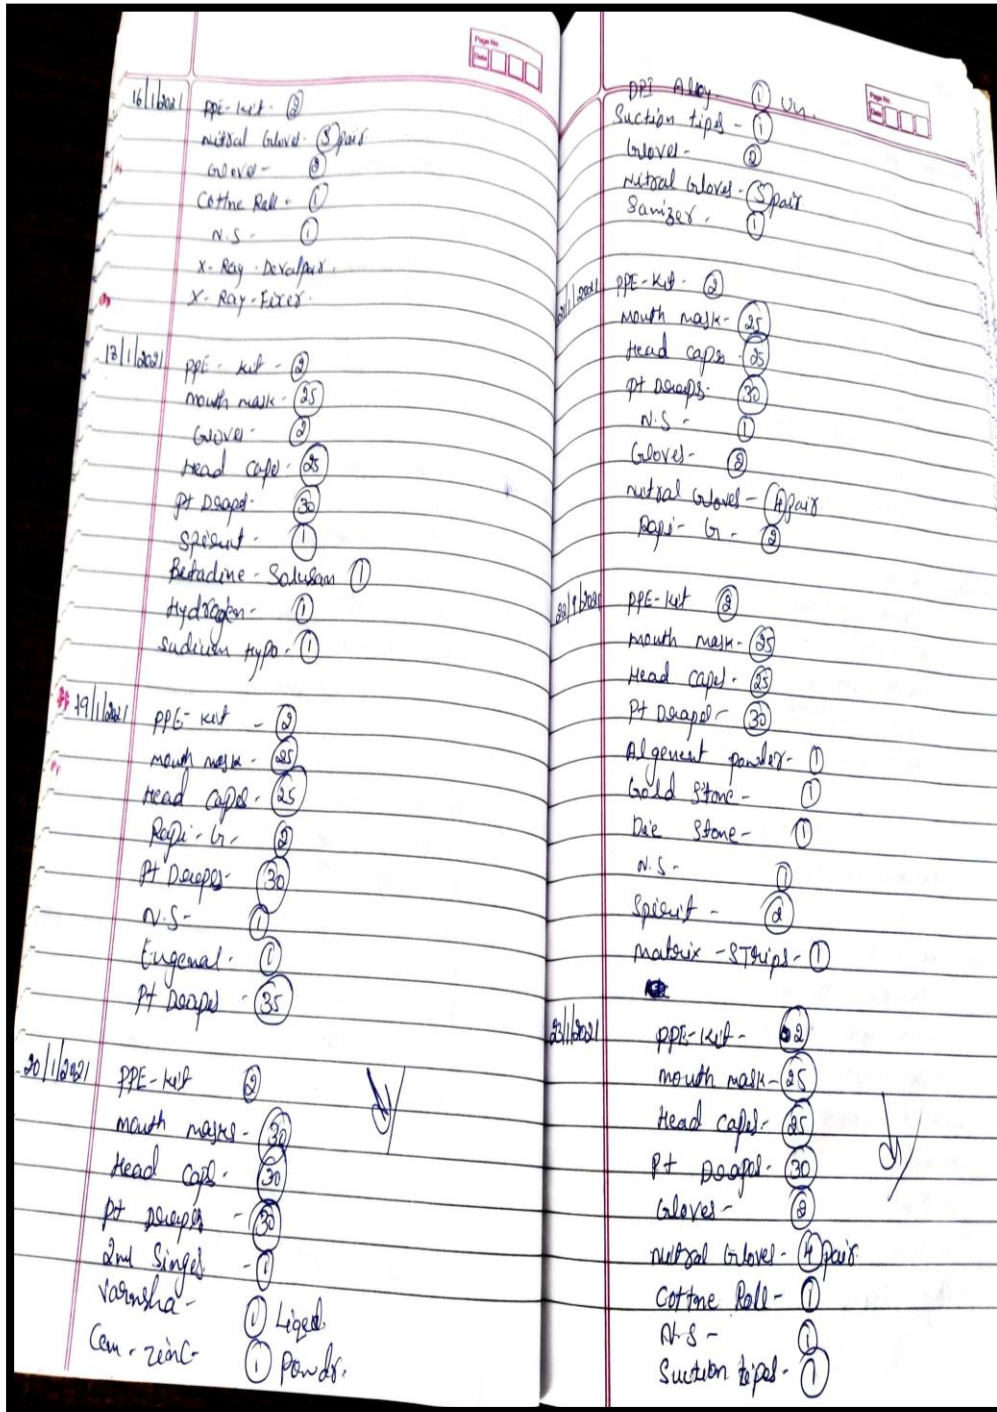 Page No
Date
16/1/2021 PPE-Kit - 2
Nitral Gloves - 5 pair
Gloves - 2
Cottne Roll - 1
N.S - 1
X-Ray - Devalpar.
X-Ray - Fixer.
18/1/2021 PPE - Kit - 2
mouth mask - 25
Gloves - 2
Head caps - 25
Pt Drapes - 30
Spirit - 1
Betadine - Solusan 1
Hydrogen - 1
Sudium Hypo - 1
19/1/2021 PPE - Kit - 2
mouth mask - 25
Head caps - 25
Rapi - G - 2
Pt Drapes - 30
N.S - 1
Eugenal - 1
Pt Drapes - 35
20/1/2021 PPE-Kit 2
mouth masks - 30
Head caps - 30
Pt Drapes - 30
2ml Singes - 1
Varnsha - 1 Liqed.
Cem - zinc - 1 Powdr.
Page No
Date
DPI Alloy - 1
Suction tips - 1
Gloves - 2
Nitral Gloves - 5 pair
Sanizer - 1
21/1/2021 PPE-Kit - 2
mouth mask - 25
Head caps - 25
Pt Drapes - 30
N.S - 1
Gloves - 2
Nitral Gloves - 4 pair
Rapi - G - 2
22/1/2021 PPE-Kit 2
mouth mask - 25
Head caps - 25
Pt Drapes - 30
Algenent powder - 1
Gold Stone - 1
Die Stone - 1
N.S - 1
Spirit - 2
Matrix - STrips - 1
23/1/2021 PPE-Kit - 2
mouth mask - 25
Head caps - 25
Pt Drapes - 30
Gloves - 2
Nitral Gloves - 4 pair
Cottne Roll - 1
N.S - 1
Suction tipes - 1